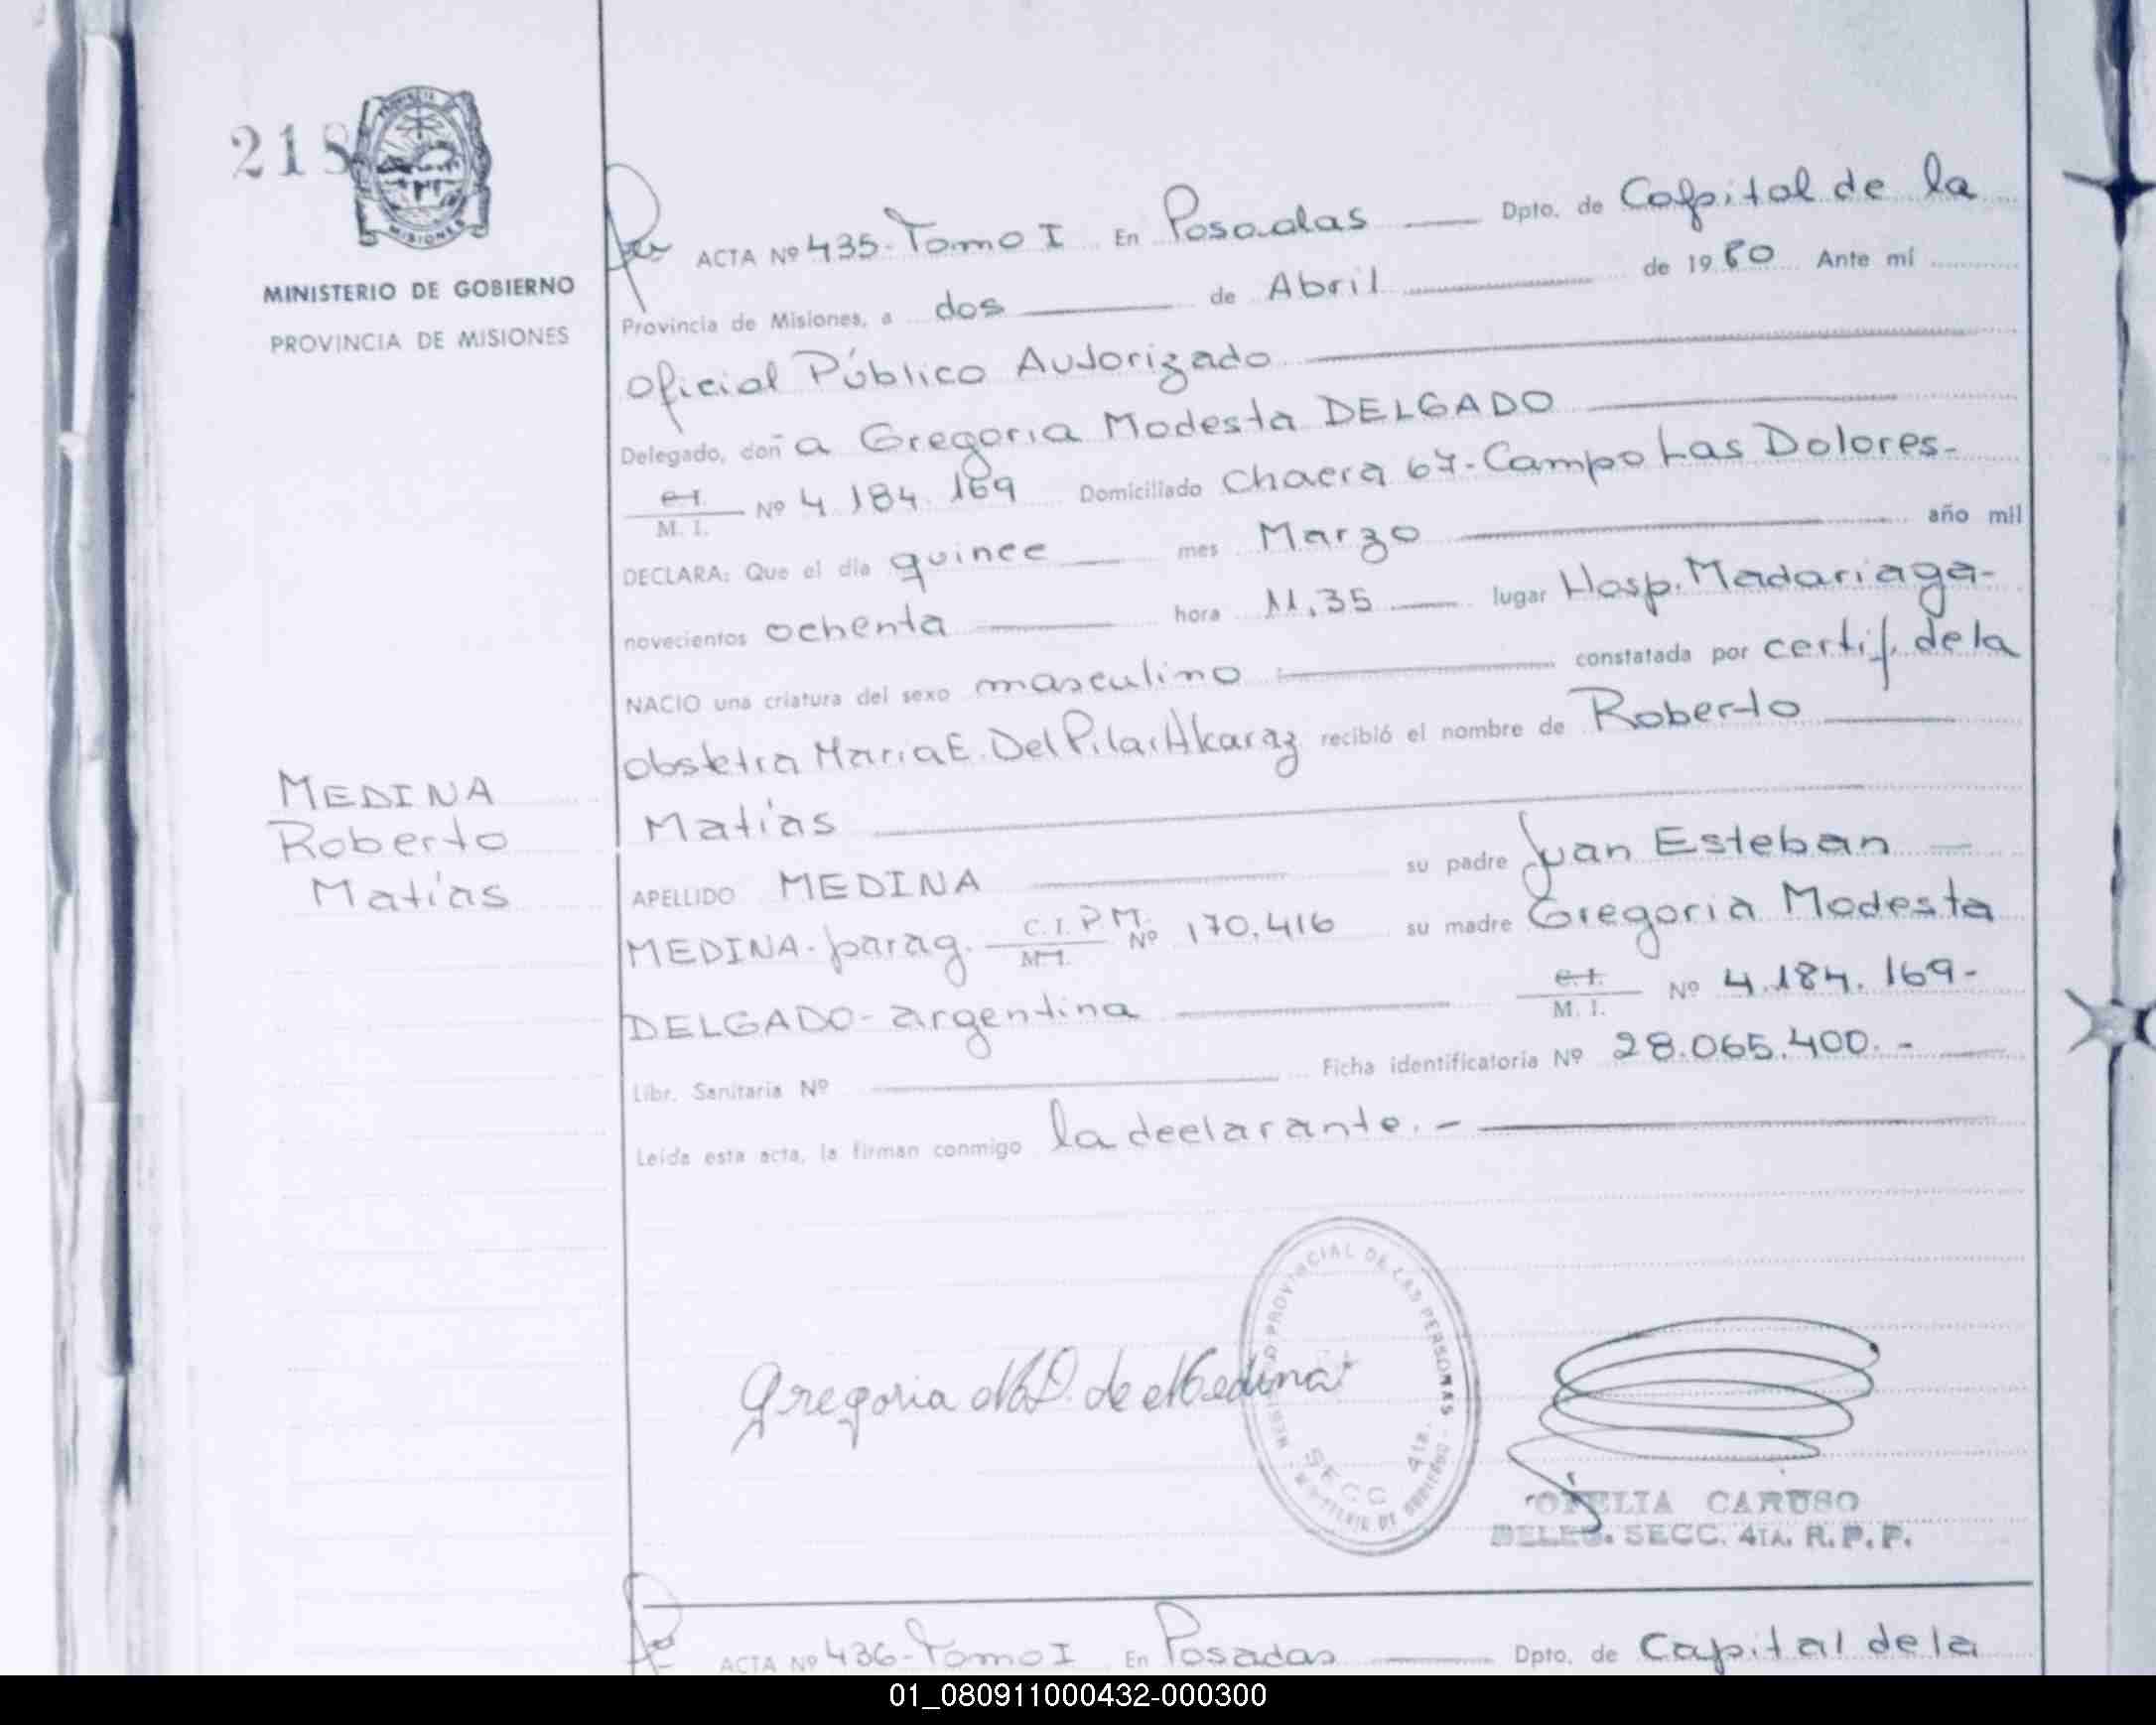 218
PROVINCIA DE
MISIONES
MINISTERIO DE GOBIERNO
PROVINCIA DE MISIONES
MEDINA
Roberto
Matías
ACTA Nº 435-Tomo I En Posadas Dpto. de Capital de la
Provincia de Misiones, a dos de Abril de 1980 Ante mí
Oficial Público Autorizado
Delegado, doña Gregoria Modesta DELGADO
C.I. M. I. Nº 4.184.169 Domiciliado Chacra 67-Campo Las Dolores-
DECLARA: Que el día quince mes Marzo año mil
novecientos ochenta hora 11,35 lugar Hosp. Madariaga-
NACIO una criatura del sexo masculino constatada por certif. de la
obstetra Maria E. Del Pilar Alcaraz recibió el nombre de Roberto
Matías
APELLIDO MEDINA su padre Juan Esteban
MEDINA-parag. C.I.P.M. M.I. Nº 170.416 su madre Gregoria Modesta
DELGADO-argentina C.I. M. I. Nº 4.184.169-
Libr. Sanitaria Nº Ficha identificatoria Nº 28.065.400.-
Leída esta acta, la firman conmigo la declarante.-
Gregoria M. D. de Medina
REGISTRO PROVINCIAL DE LAS PERSONAS
MINISTERIO DE GOBIERNO
SECC 4ta.
OFELIA CARUSO
DELEG. SECC. 4TA. R.P.P.
ACTA Nº 436-Tomo I En Posadas Dpto. de Capital de la
01_080911000432-000300